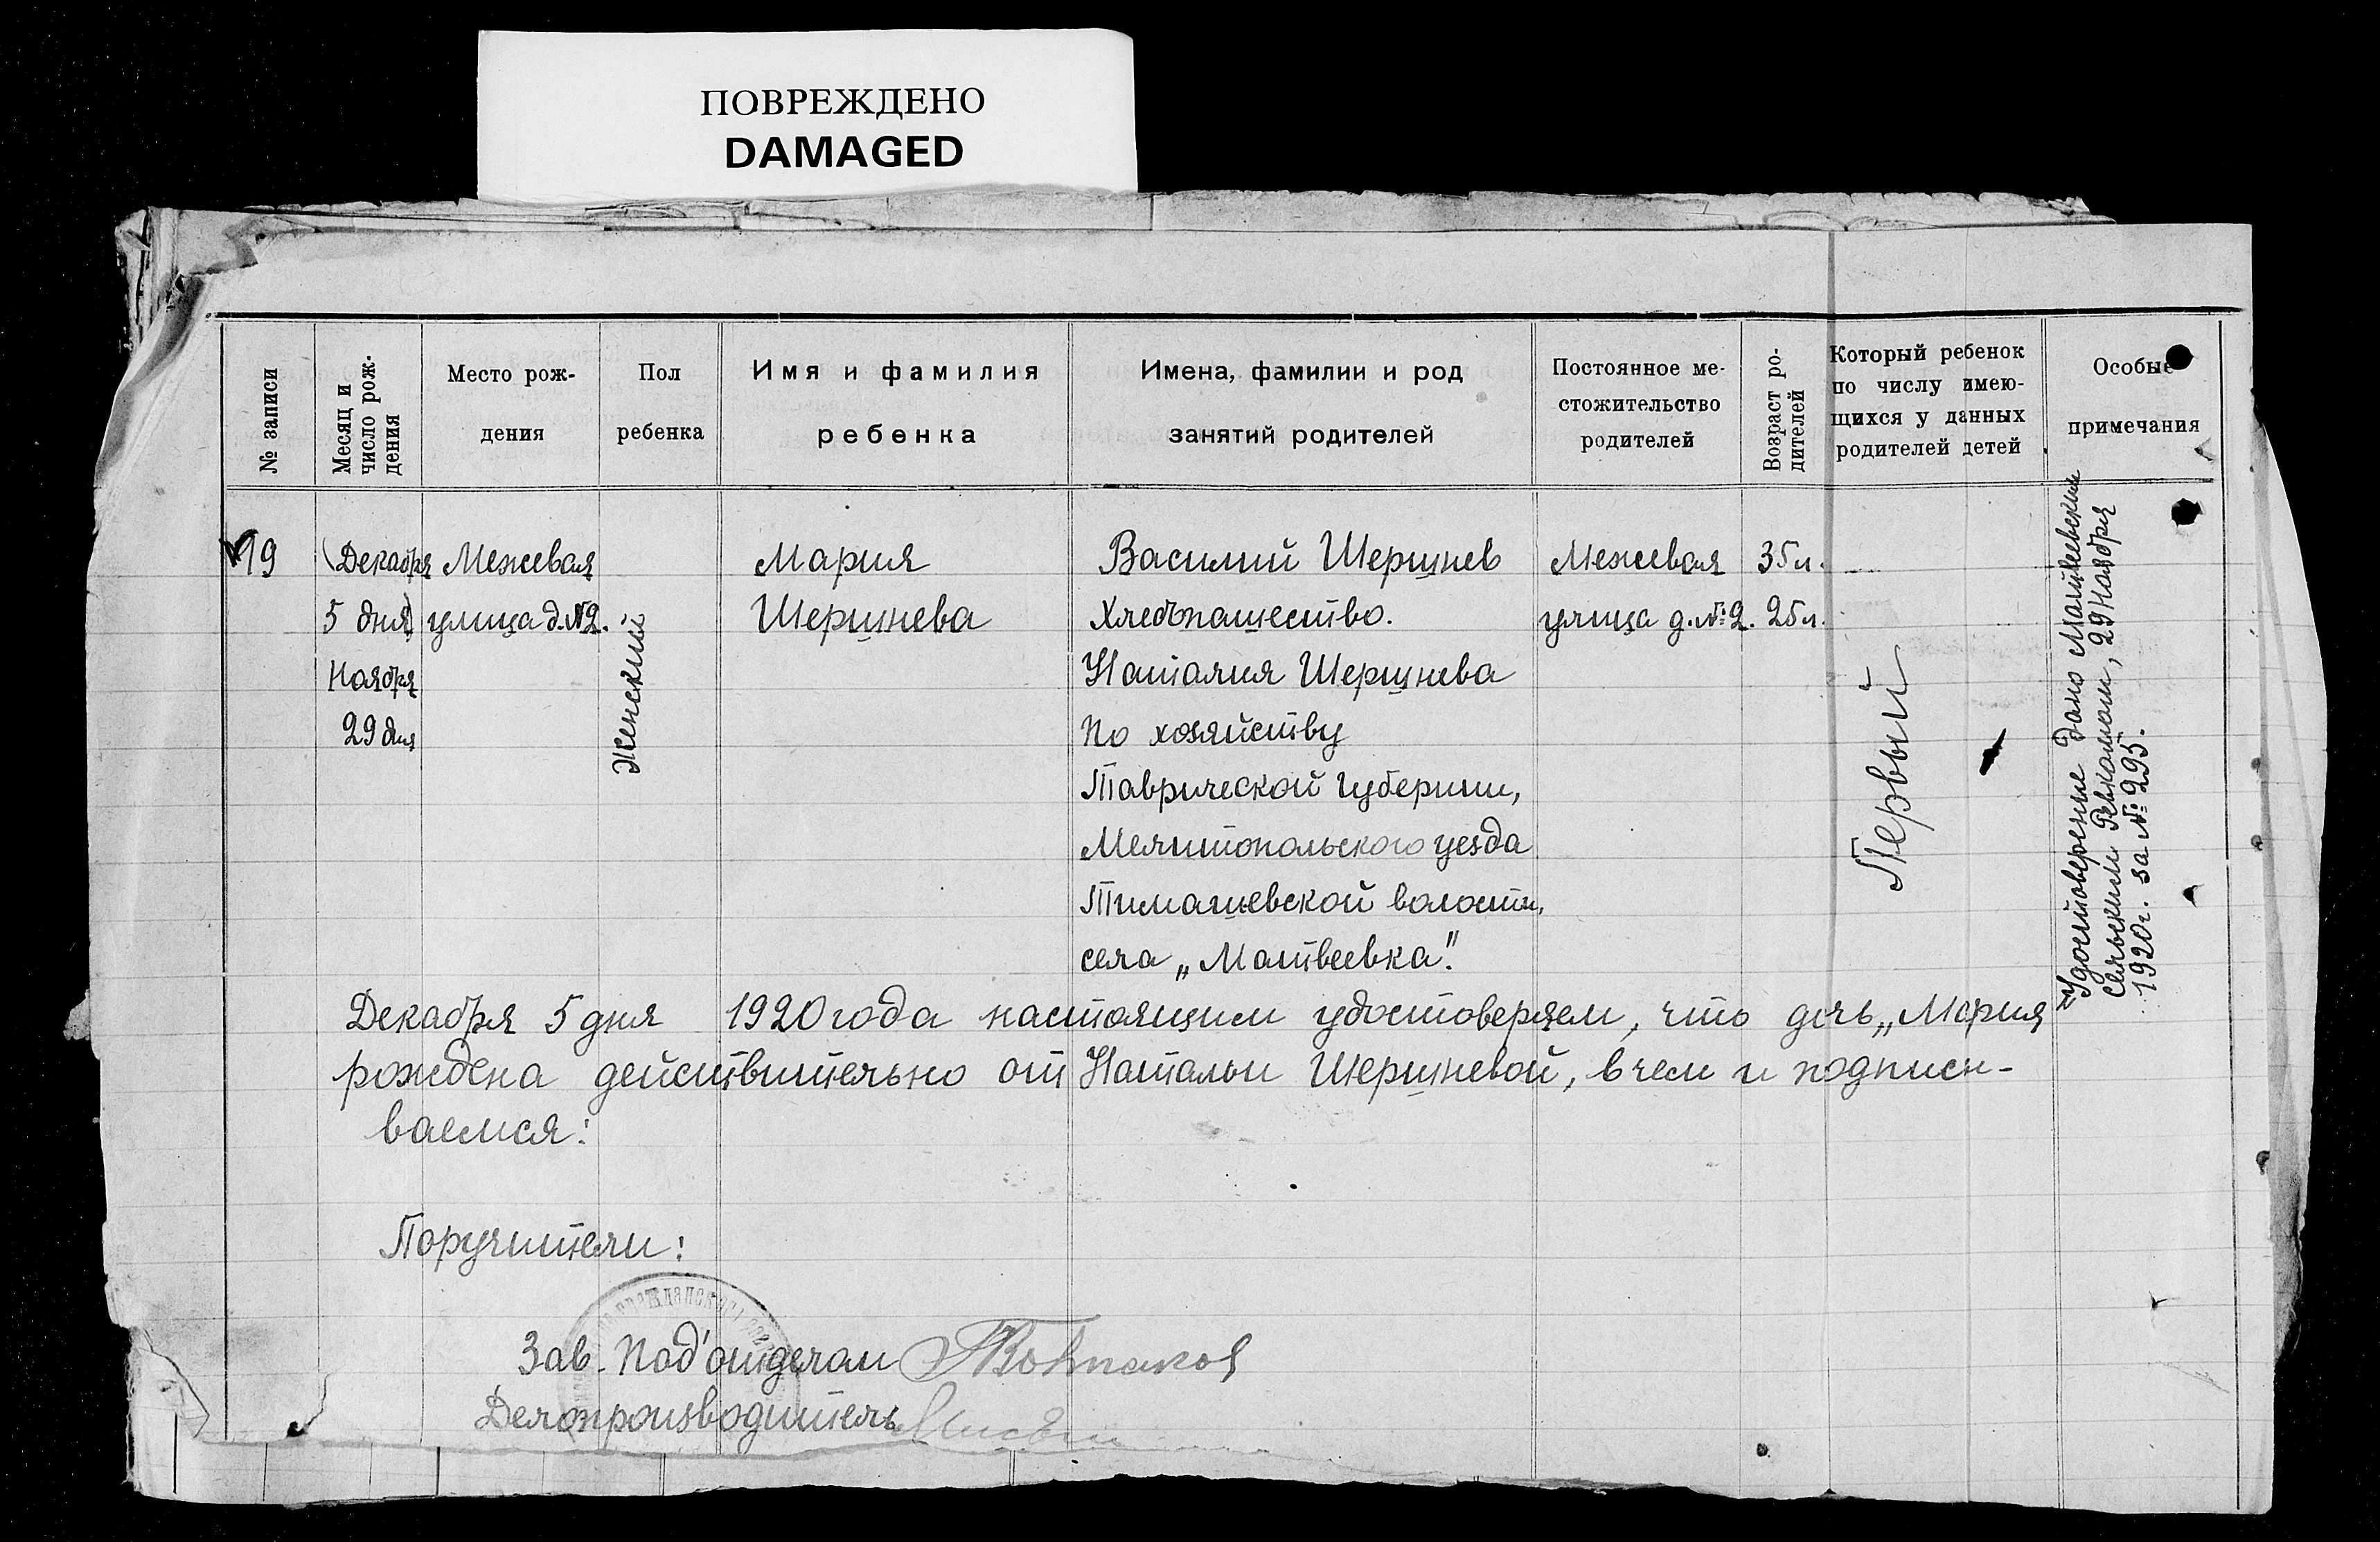 ПОВРЕЖДЕНО
DAMAGED
№ записи
Месяц и
число рож-
дения
Место рож-
дения
Пол
ребенка
Имя и фамилия
ребенка
Имена, фамилии и род
занятий родителей
Постоянное ме-
стожительство
родителей
Возраст ро-
дителей
Который ребенок
по числу имею-
щихся у данных
родителей детей
Особые
примечания
19
(Декабря
5 дня)
Ноября
29 дня
Межевая
улица д. №2.
Женский
Мария
Шершнева
Василий Шершнев
Хлебопашество.
Наталия Шершнева
По хозяйству
Таврической губернии,
Мелитопольского уезда
Тимашевской волости,
села „Матвеевка".
Межевая
улица д. №2.
35 л.
25 л.
Первый
Удостоверение дано
Сельским Ревкомом, 29 Ноября
1920 г. за № 295.
Декабря 5 дня 1920 года настоящим удостоверяем, что дочь „Мария"
рождена действительно от Натальи Шершневой, в чем и подписы-
ваемся:
Поручители:
Зав. Под'отделом
Делопроизводитель